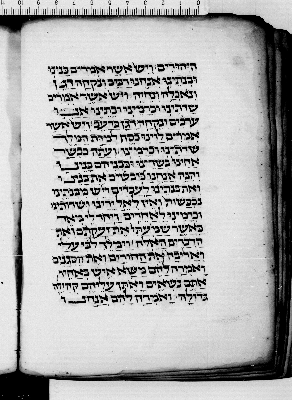 היהודים ויש אשר אמרים בנינו
ובנתינו אנחנו רבים ונקחה דגן
ונאכלה ונחיה ויש אשר אמרים
שדתינו וכרמינו ובתינו אנחנו
ערבים ונקחה דגן ברעב ויש אשר
אמרים לוינו כסף למדת המלך
שדתינו וכרמינו ועתה כבשר
אחינו בשרנו כבניהם בנינו
והנה אנחנו כבשים את בנינו
ואת בנתינו לעבדים ויש מבנתינו
נכבשות ואין לאל ידינו ושדתינו
וכרמינו לאחרים ויחר לי מאד
כאשר שמעתי את זעקתם ואת
הדברים האלה וימלך לבי עלי
ואריבה את החורים ואת הסגנים
ואמרה להם משא איש באחיו
אתם נשאים ואתן עליהם קהלה
גדולה ואמרה להם אנחנו